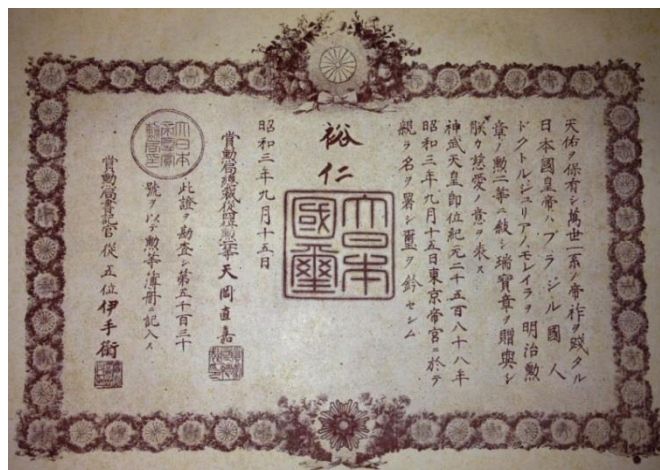 天佑ヲ保有シ萬世一系ノ帝祚ヲ踐タル
日本國皇帝ハブラジル國人
ドクトルジュリアノモレイラヲ明治勲
章ノ勲二等ニ敍シ瑞寶章ヲ贈與シ
朕カ慈愛ノ意ヲ表ス
神武天皇即位紀元二千五百八十八年
昭和三年九月十五日東京帝宮ニ於テ
親ラ名ヲ署シ璽ヲ鈐セシム
裕仁
大日本國璽
昭和三年九月十五日
賞勲局總裁從四位勲二等天岡直嘉
此證ヲ勘査シ第五千百三十
號ヲ以テ勲等簿册ニ記入ス
賞勲局書記官從五位伊手衡